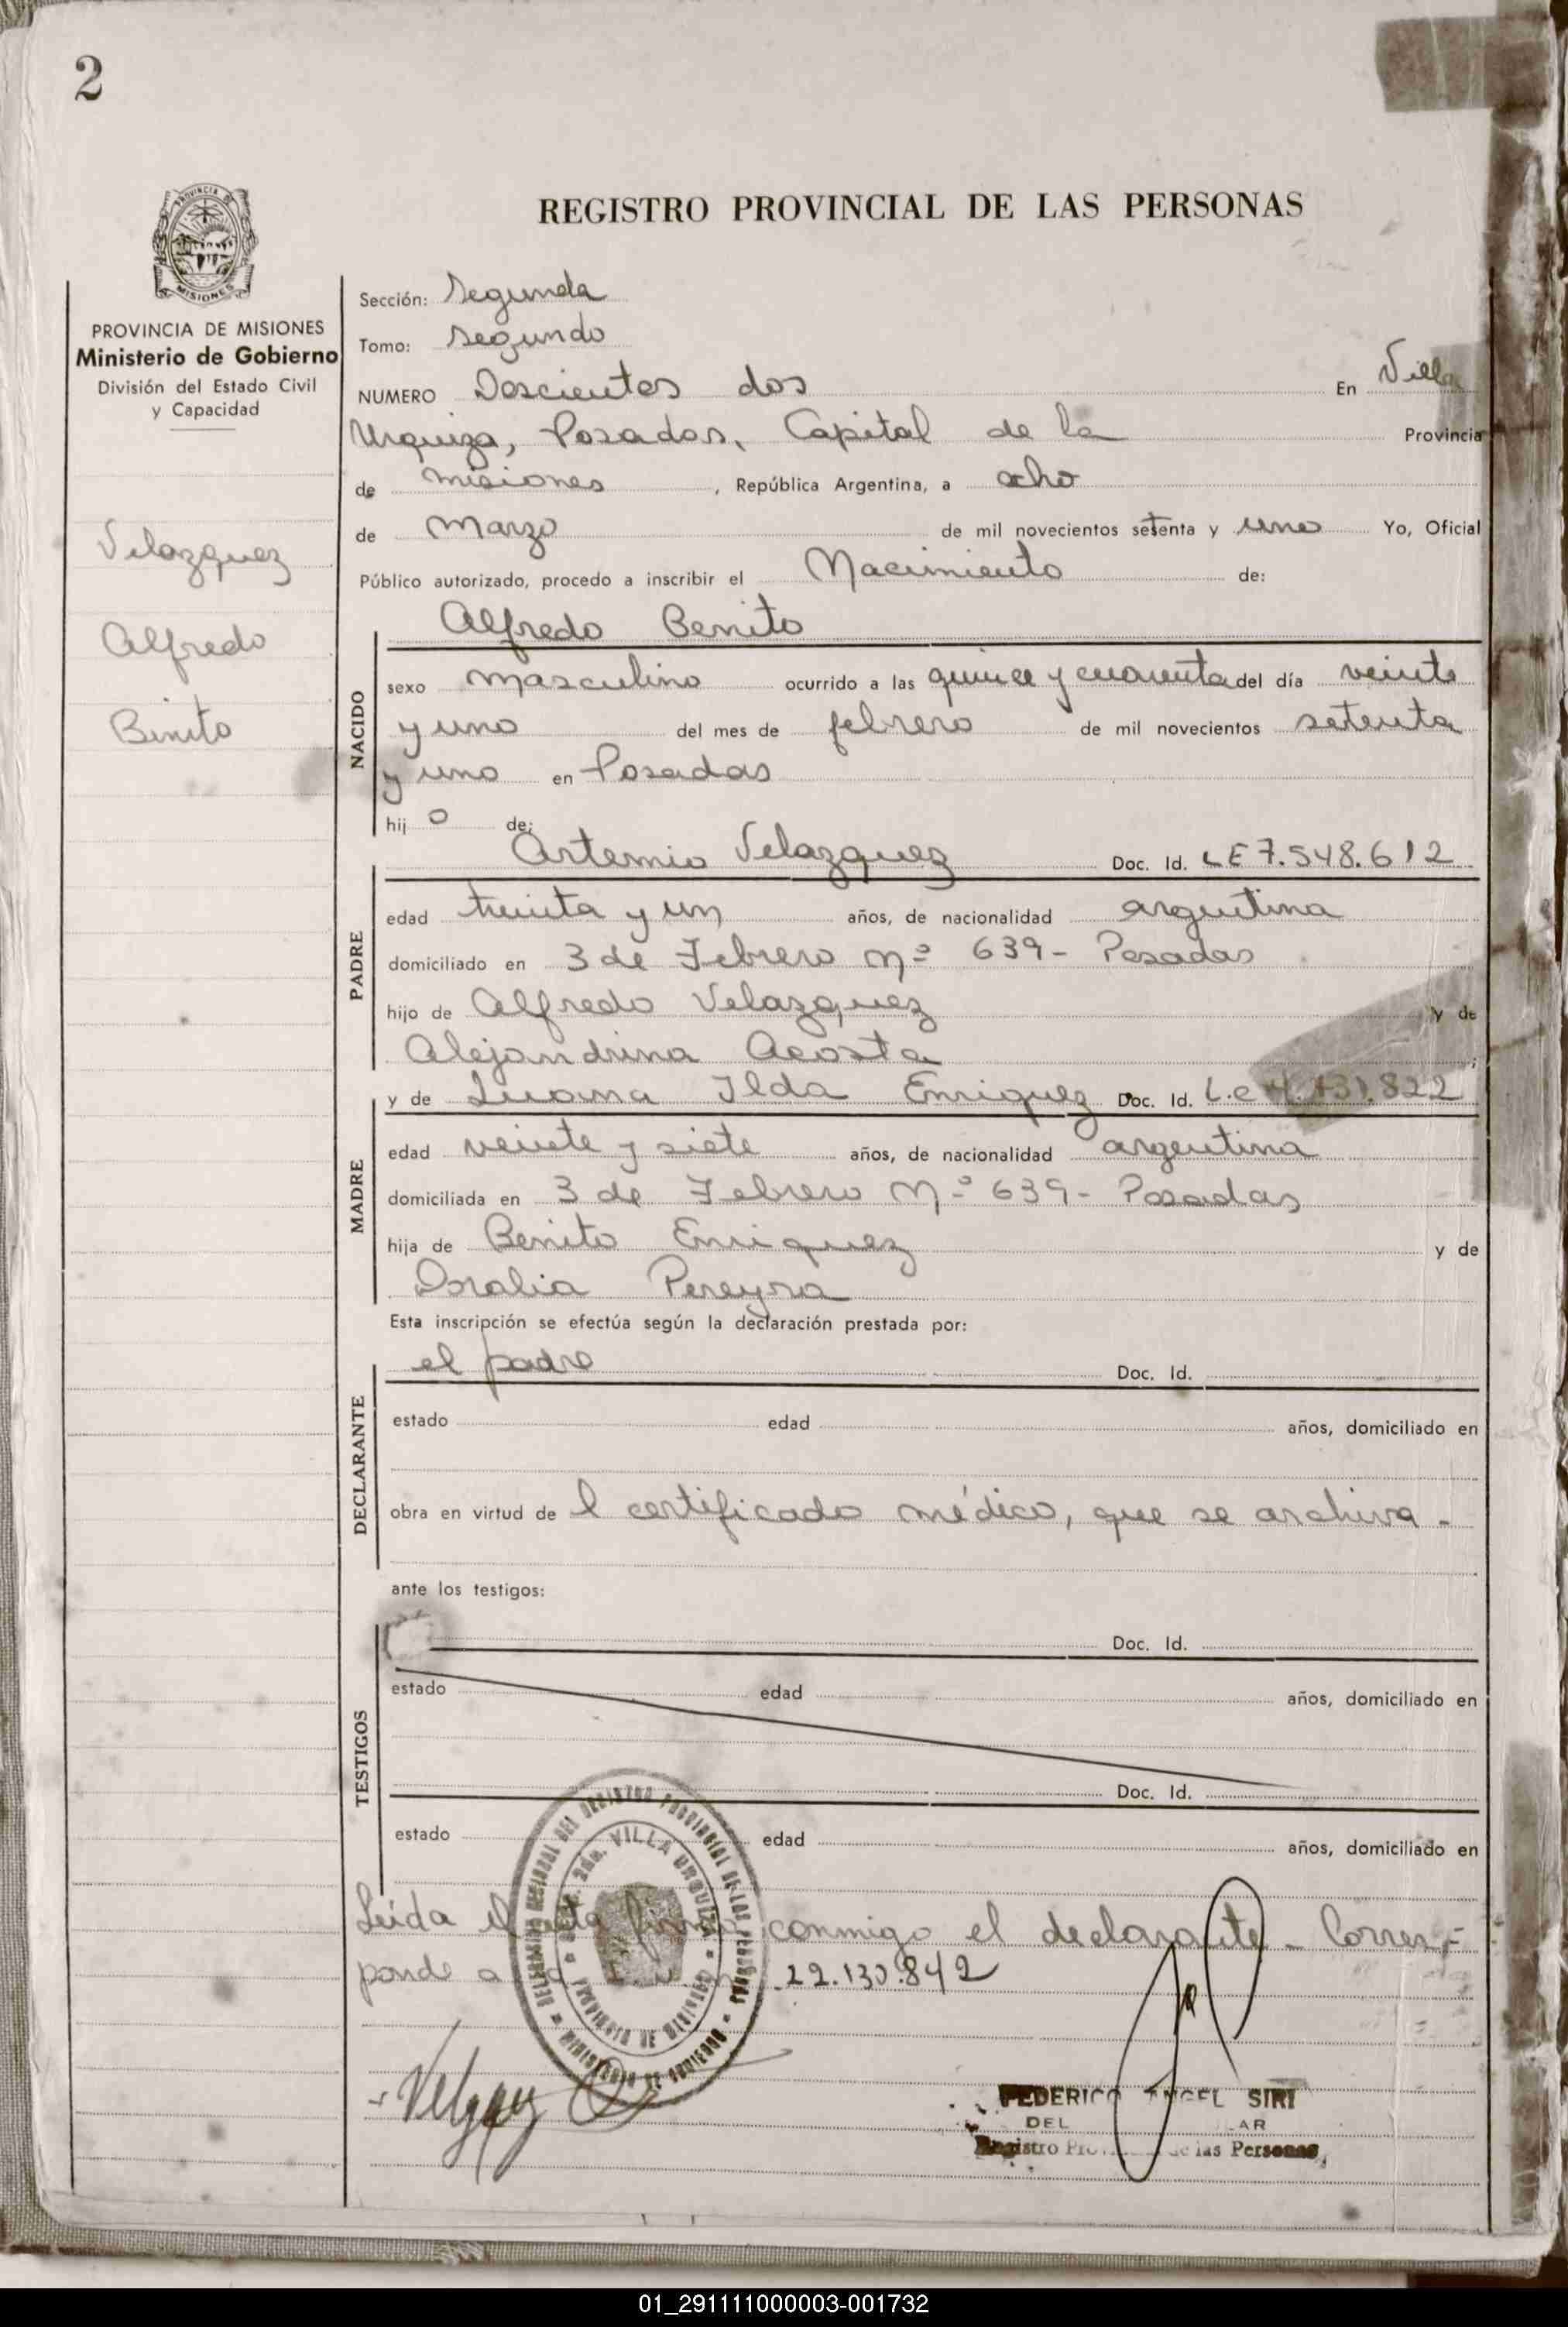 2
PROVINCIA DE MISIONES
Ministerio de Gobierno
División del Estado Civil
y Capacidad
Velazquez
Alfredo
Benito
REGISTRO PROVINCIAL DE LAS PERSONAS
Sección: Segunda
Tomo: Segundo
NUMERO Doscientos dos En Villa
Urquiza, Posadas, Capital de la Provincia
de Misiones, República Argentina, a ocho
de Marzo de mil novecientos setenta y uno Yo, Oficial
Público autorizado, procedo a inscribir el Nacimiento de:
Alfredo Benito
NACIDO
sexo masculino ocurrido a las quince y cuarenta del día veinte
y uno del mes de febrero de mil novecientos setenta
y uno en Posadas
hijo de:
Artemio Velazquez Doc. Id. LE 7.548.612
PADRE
edad treinta y un años, de nacionalidad argentina
domiciliado en 3 de Febrero Nº 639 - Posadas
hijo de Alfredo Velazquez y de
Alejandrina Acosta;
y de Juana Ilda Enriquez Doc. Id. L.C 822
MADRE
edad veinte y siete años, de nacionalidad argentina
domiciliada en 3 de Febrero Nº 639 - Posadas
hija de Benito Enriquez y de
Doralia Pereyra
Esta inscripción se efectúa según la declaración prestada por:
el padre Doc. Id.
DECLARANTE
estado edad años, domiciliado en
obra en virtud de l certificado médico, que se archiva -
ante los testigos:
Doc. Id.
TESTIGOS
estado edad años, domiciliado en
Doc. Id.
estado edad años, domiciliado en
Leída el acta firma conmigo el declarante - Corres-
ponde a 22.130.842
DELEGACION REGIONAL DEL REGISTRO PROVINCIAL DE LAS PERSONAS
MINISTERIO DE GOBIERNO
2da. VILLA URQUIZA
PROVINCIA DE MISIONES
FEDERICO ANGEL SIRI
DEL AR
Registro de las Personas
01_291111000003-001732